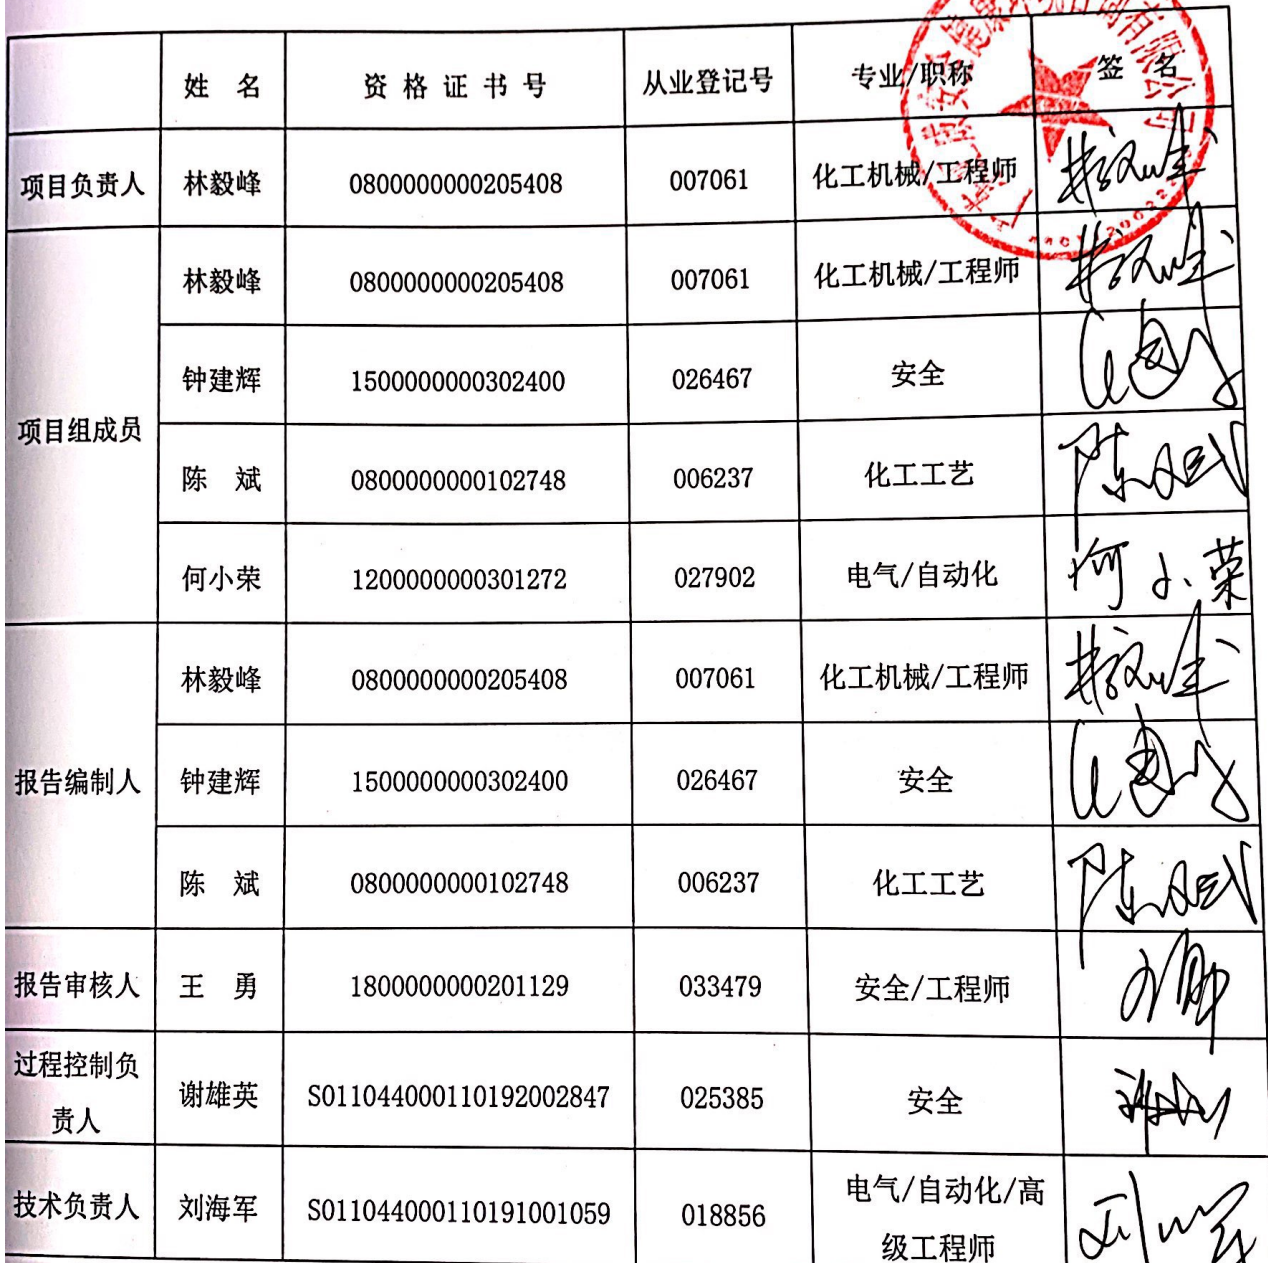 姓 名 资 格 证 书 号 从业登记号 专业/职称 签 名
项目负责人 林毅峰 0800000000205408 007061 化工机械/工程师 林毅峰
项目组成员 林毅峰 0800000000205408 007061 化工机械/工程师 林毅峰
钟建辉 1500000000302400 026467 安全
陈 斌 0800000000102748 006237 化工工艺 陈斌
何小荣 1200000000301272 027902 电气/自动化 何小荣
报告编制人 林毅峰 0800000000205408 007061 化工机械/工程师 林毅峰
钟建辉 1500000000302400 026467 安全
陈 斌 0800000000102748 006237 化工工艺 陈斌
报告审核人 王 勇 1800000000201129 033479 安全/工程师
过程控制负
责人 谢雄英 S011044000110192002847 025385 安全
技术负责人 刘海军 S011044000110191001059 018856 电气/自动化/高
级工程师 刘海军